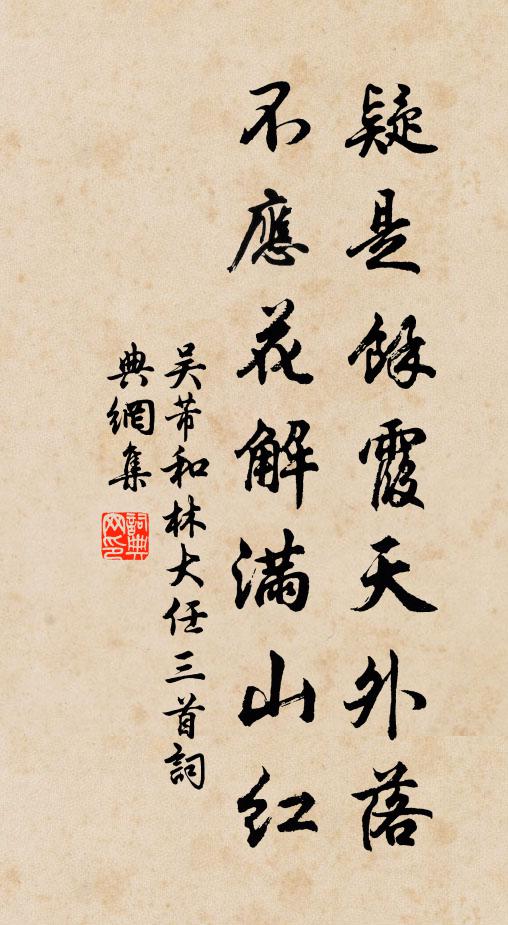 疑是餘霞天外落
不應花解滿山红
吴芾和林大任三首詞
典網集
詞典
网印